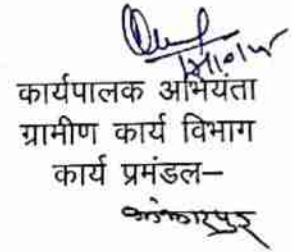 कार्यपालक अभियंता
ग्रामीण कार्य विभाग
कार्य प्रमंडल–
झंझारपुर